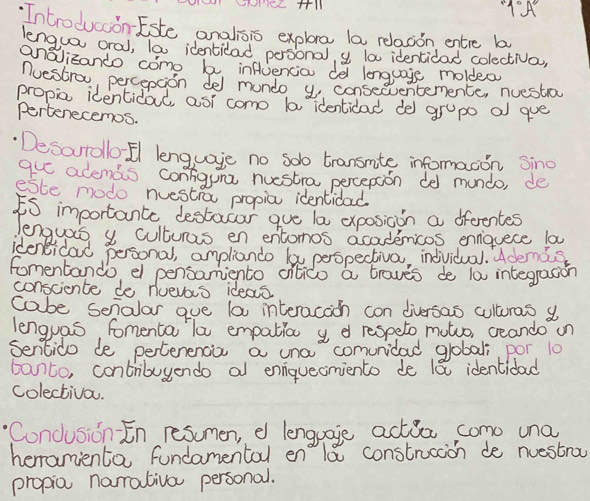 #11 "1°A"
•Introducción-Este analisis explora la relación entre la
lengua oral, la identidad personal y la identidad colectiva,
analizando cómo la influencia del lenguaje moldea
nuestra percepción del mundo y, consecuentemente, nuestra
propia identidad, así como la identidad del grupo al que
pertenecemos.
•Desarrollo-El lenguaje no solo transmite información, sino
que además configura nuestra percepción del mundo, de
este modo nuestra propia identidad.
ES importante destacar que la exposición a diferentes
lenguas y culturas en entornos académicos enriquece la
identidad personal, ampliando la perspectiva, individual. Además,
fomentando el pensamiento crítico a través de la integración
consciente de nuevas ideas.
Cabe señalar que la interacción con diversas culturas y
lenguas fomenta la empatía y el respeto mutuo, creando un
sentido de pertenencia a una comunidad global; por lo
tanto, contribuyendo al enriquecimiento de la identidad
colectiva.
•Conclusión-En resumen, el lenguaje actúa como una
herramienta fundamental en la construcción de nuestra
propia narrativa personal.